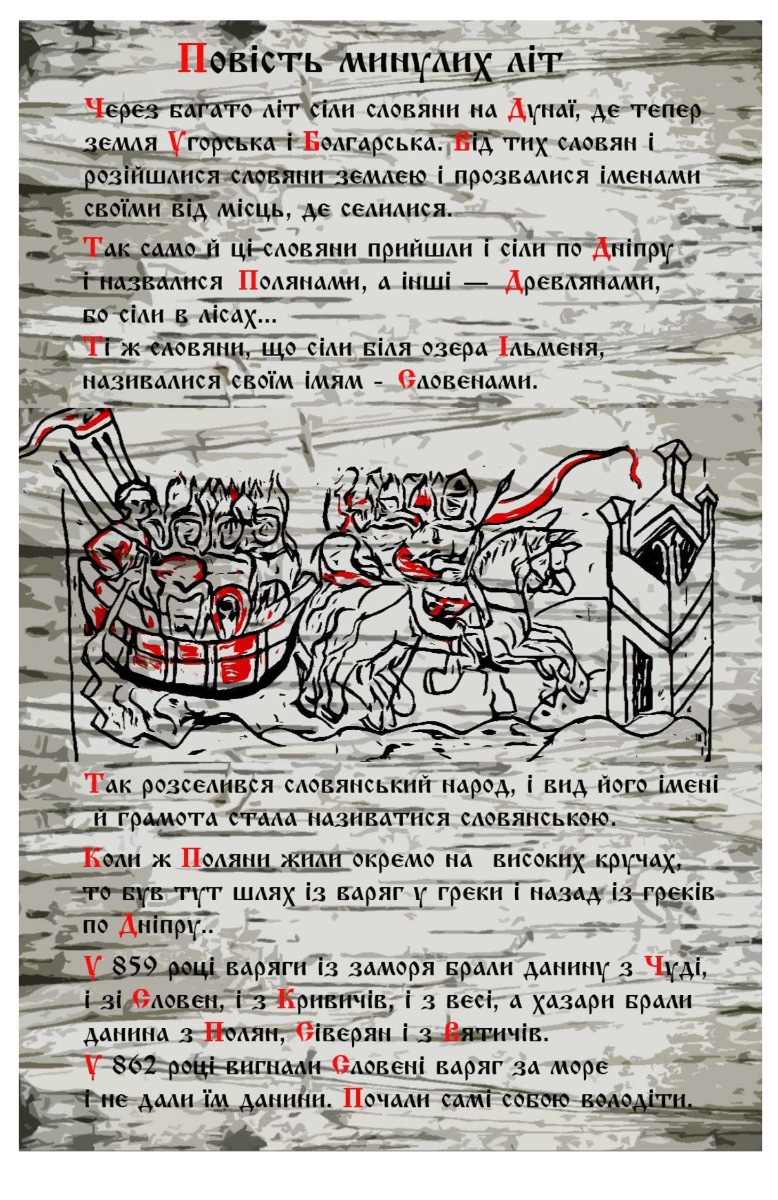 Повість минулих літ
Через багато літ сіли словяни на Дунаї, де тепер
земля Угорська і Болгарська. Від тих словян і
розійшлися словяни землею і прозвалися іменами
своїми від місць, де селилися.
Так само й ці словяни прийшли і сіли по Дніпру
і назвалися Полянами, а інші — Древлянами,
бо сіли в лісах...
Ті ж словяни, що сіли біля озера Ільменя,
називалися своїм імям - Словенами.
Так розселився словянський народ, і вид його імені
й грамота стала називатися словянською.
Коли ж Поляни жили окремо на високих кручах,
то був тут шлях із варяг у греки і назад із греків
по Дніпру..
У 859 році варяги із заморя брали данину з Чуді,
і зі Словен, і з Кривичів, і з весі, а хазари брали
данина з Полян, Сіверян і з Вятичів.
У 862 році вигнали Словені варяг за море
і не дали їм данини. Почали самі собою володіти.